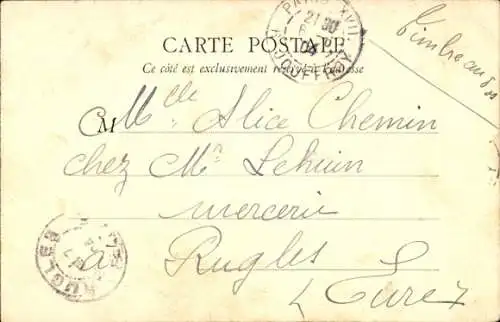 PARIS XVII
21 30
04
R. JOUFFROY
Timbre au dos
CARTE POSTALE
Ce côté est exclusivement réservé à l'adresse
M Mlle Alice Chemin
chez Mr Lehuin
mercerie
à Rugles
Eure
RUGLES